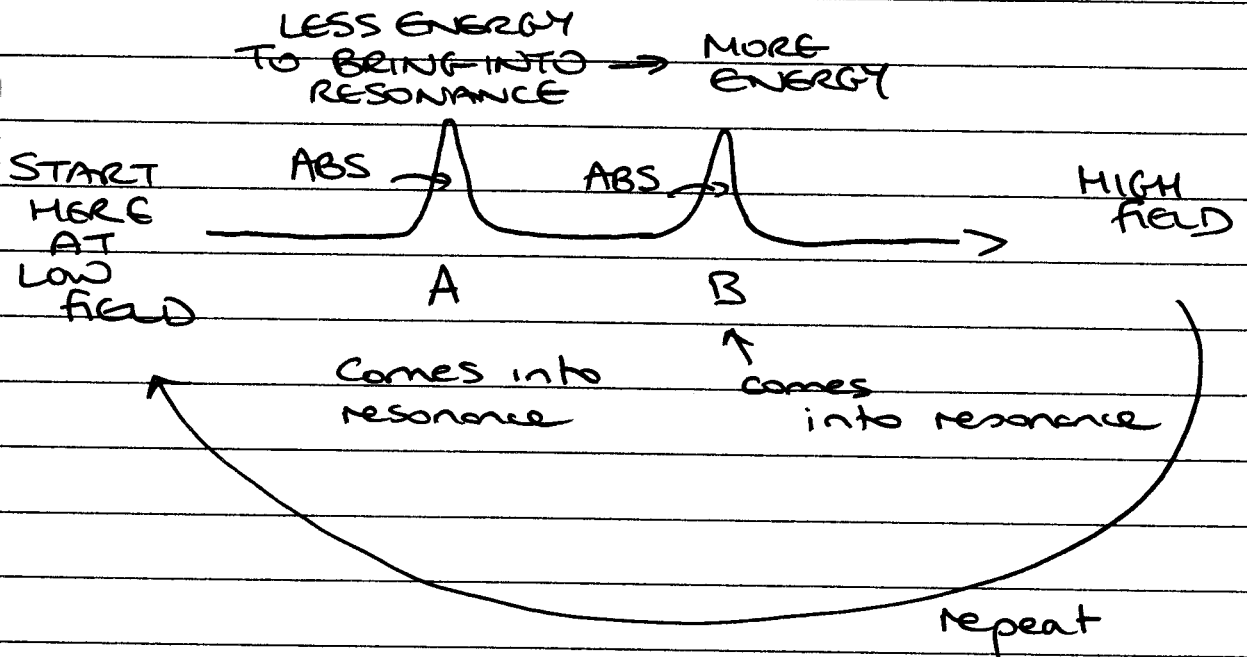 LESS ENERGY
TO BRING INTO → MORE
RESONANCE
ENERGY
START
HERE
AT
LOW
FIELD
ABS →
ABS →
HIGH
FIELD
A
B
Comes into
resonance
comes
into resonance
repeat